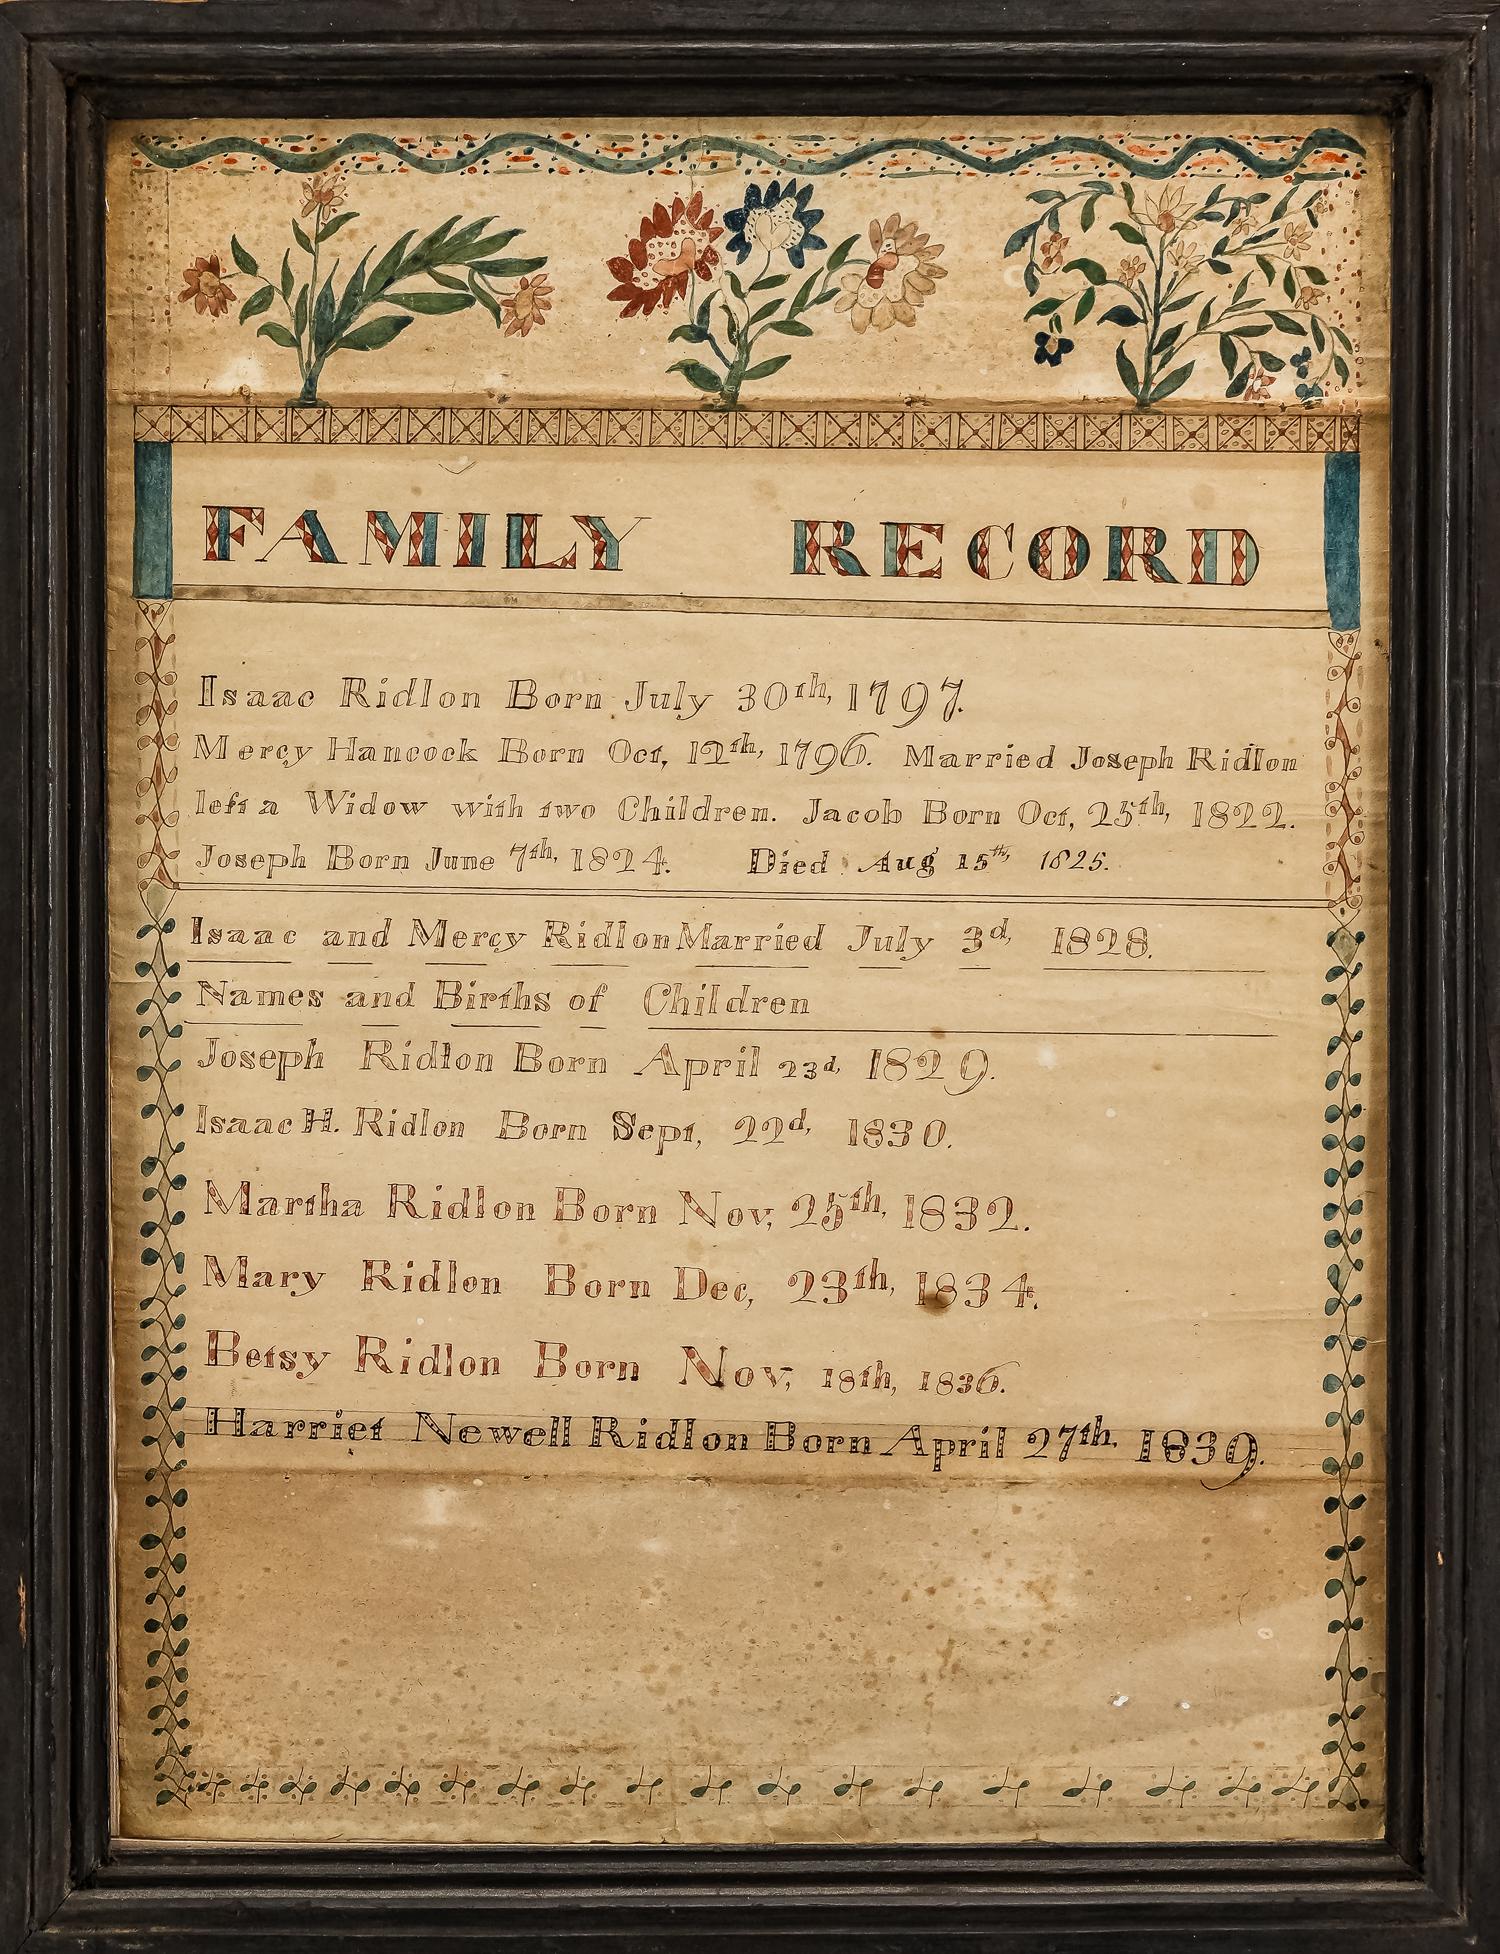 FAMILY RECORD
Isaac Ridlon Born July 30th, 1797.
Mercy Hancock Born Oct, 12th, 1796. Married Joseph Ridlon
left a Widow with two Children. Jacob Born Oct, 25th, 1822.
Joseph Born June 7th, 1824. Died Aug 15th, 1825.
Isaac and Mercy Ridlon Married July 3d, 1828.
Names and Births of Children
Joseph Ridlon Born April 23d, 1829.
Isaac H. Ridlon Born Sept, 22d, 1830.
Martha Ridlon Born Nov, 25th, 1832.
Mary Ridlon Born Dec, 23th, 1834.
Betsy Ridlon Born Nov, 18th, 1836.
Harriet Newell Ridlon Born April 27th. 1839.